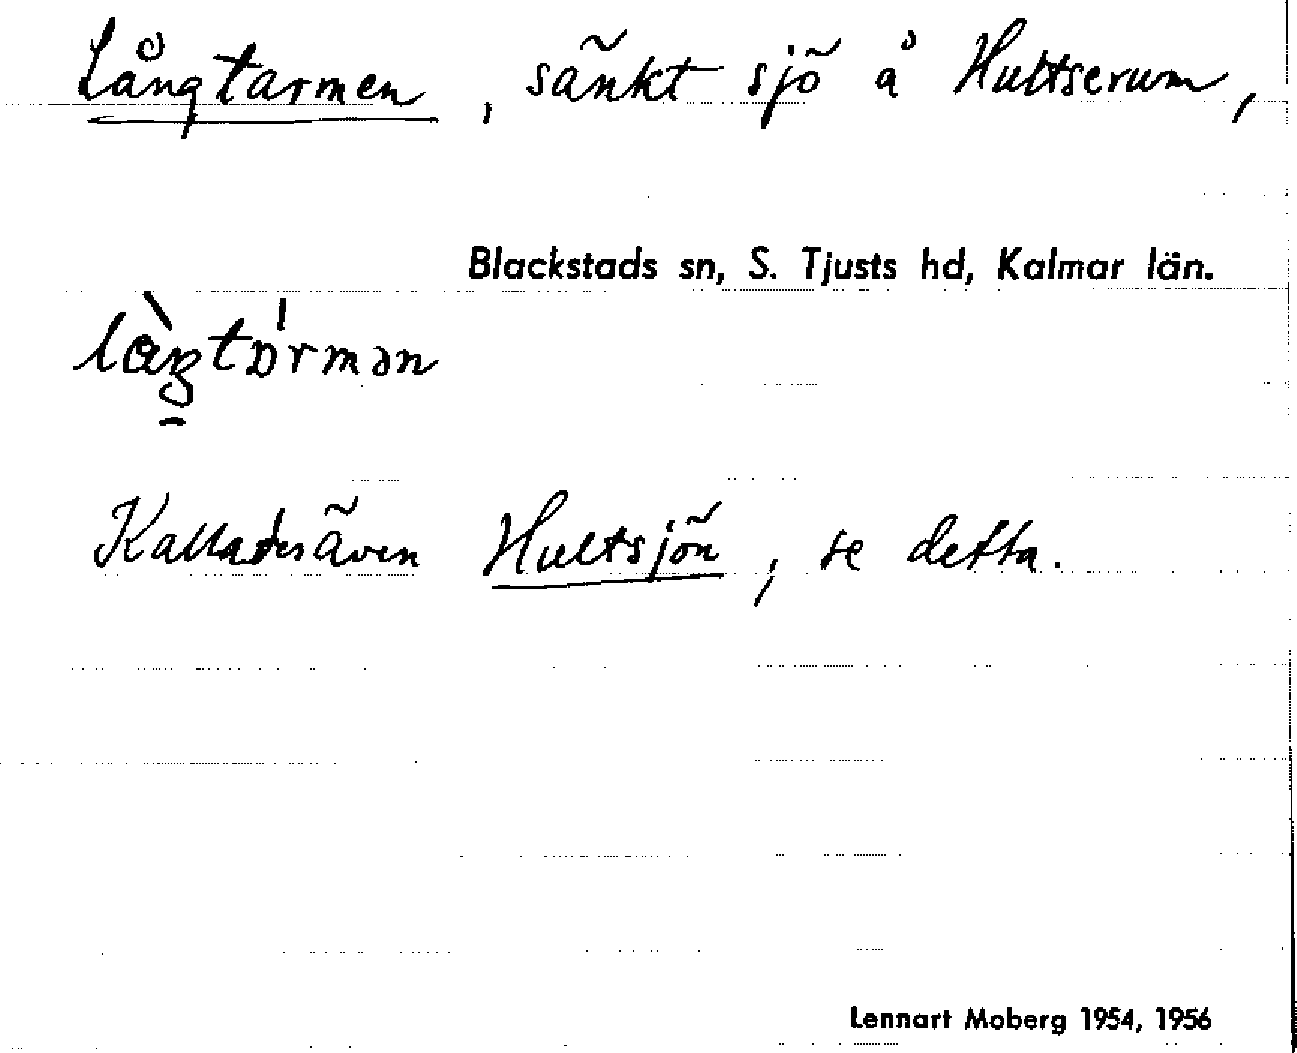 Långtarmen, sänkt sjö å Hultserum,
Blackstads sn, S. Tjusts hd, Kalmar län.
Kallades även Hultsjön, se detta.
Lennart Moberg 1954, 1956